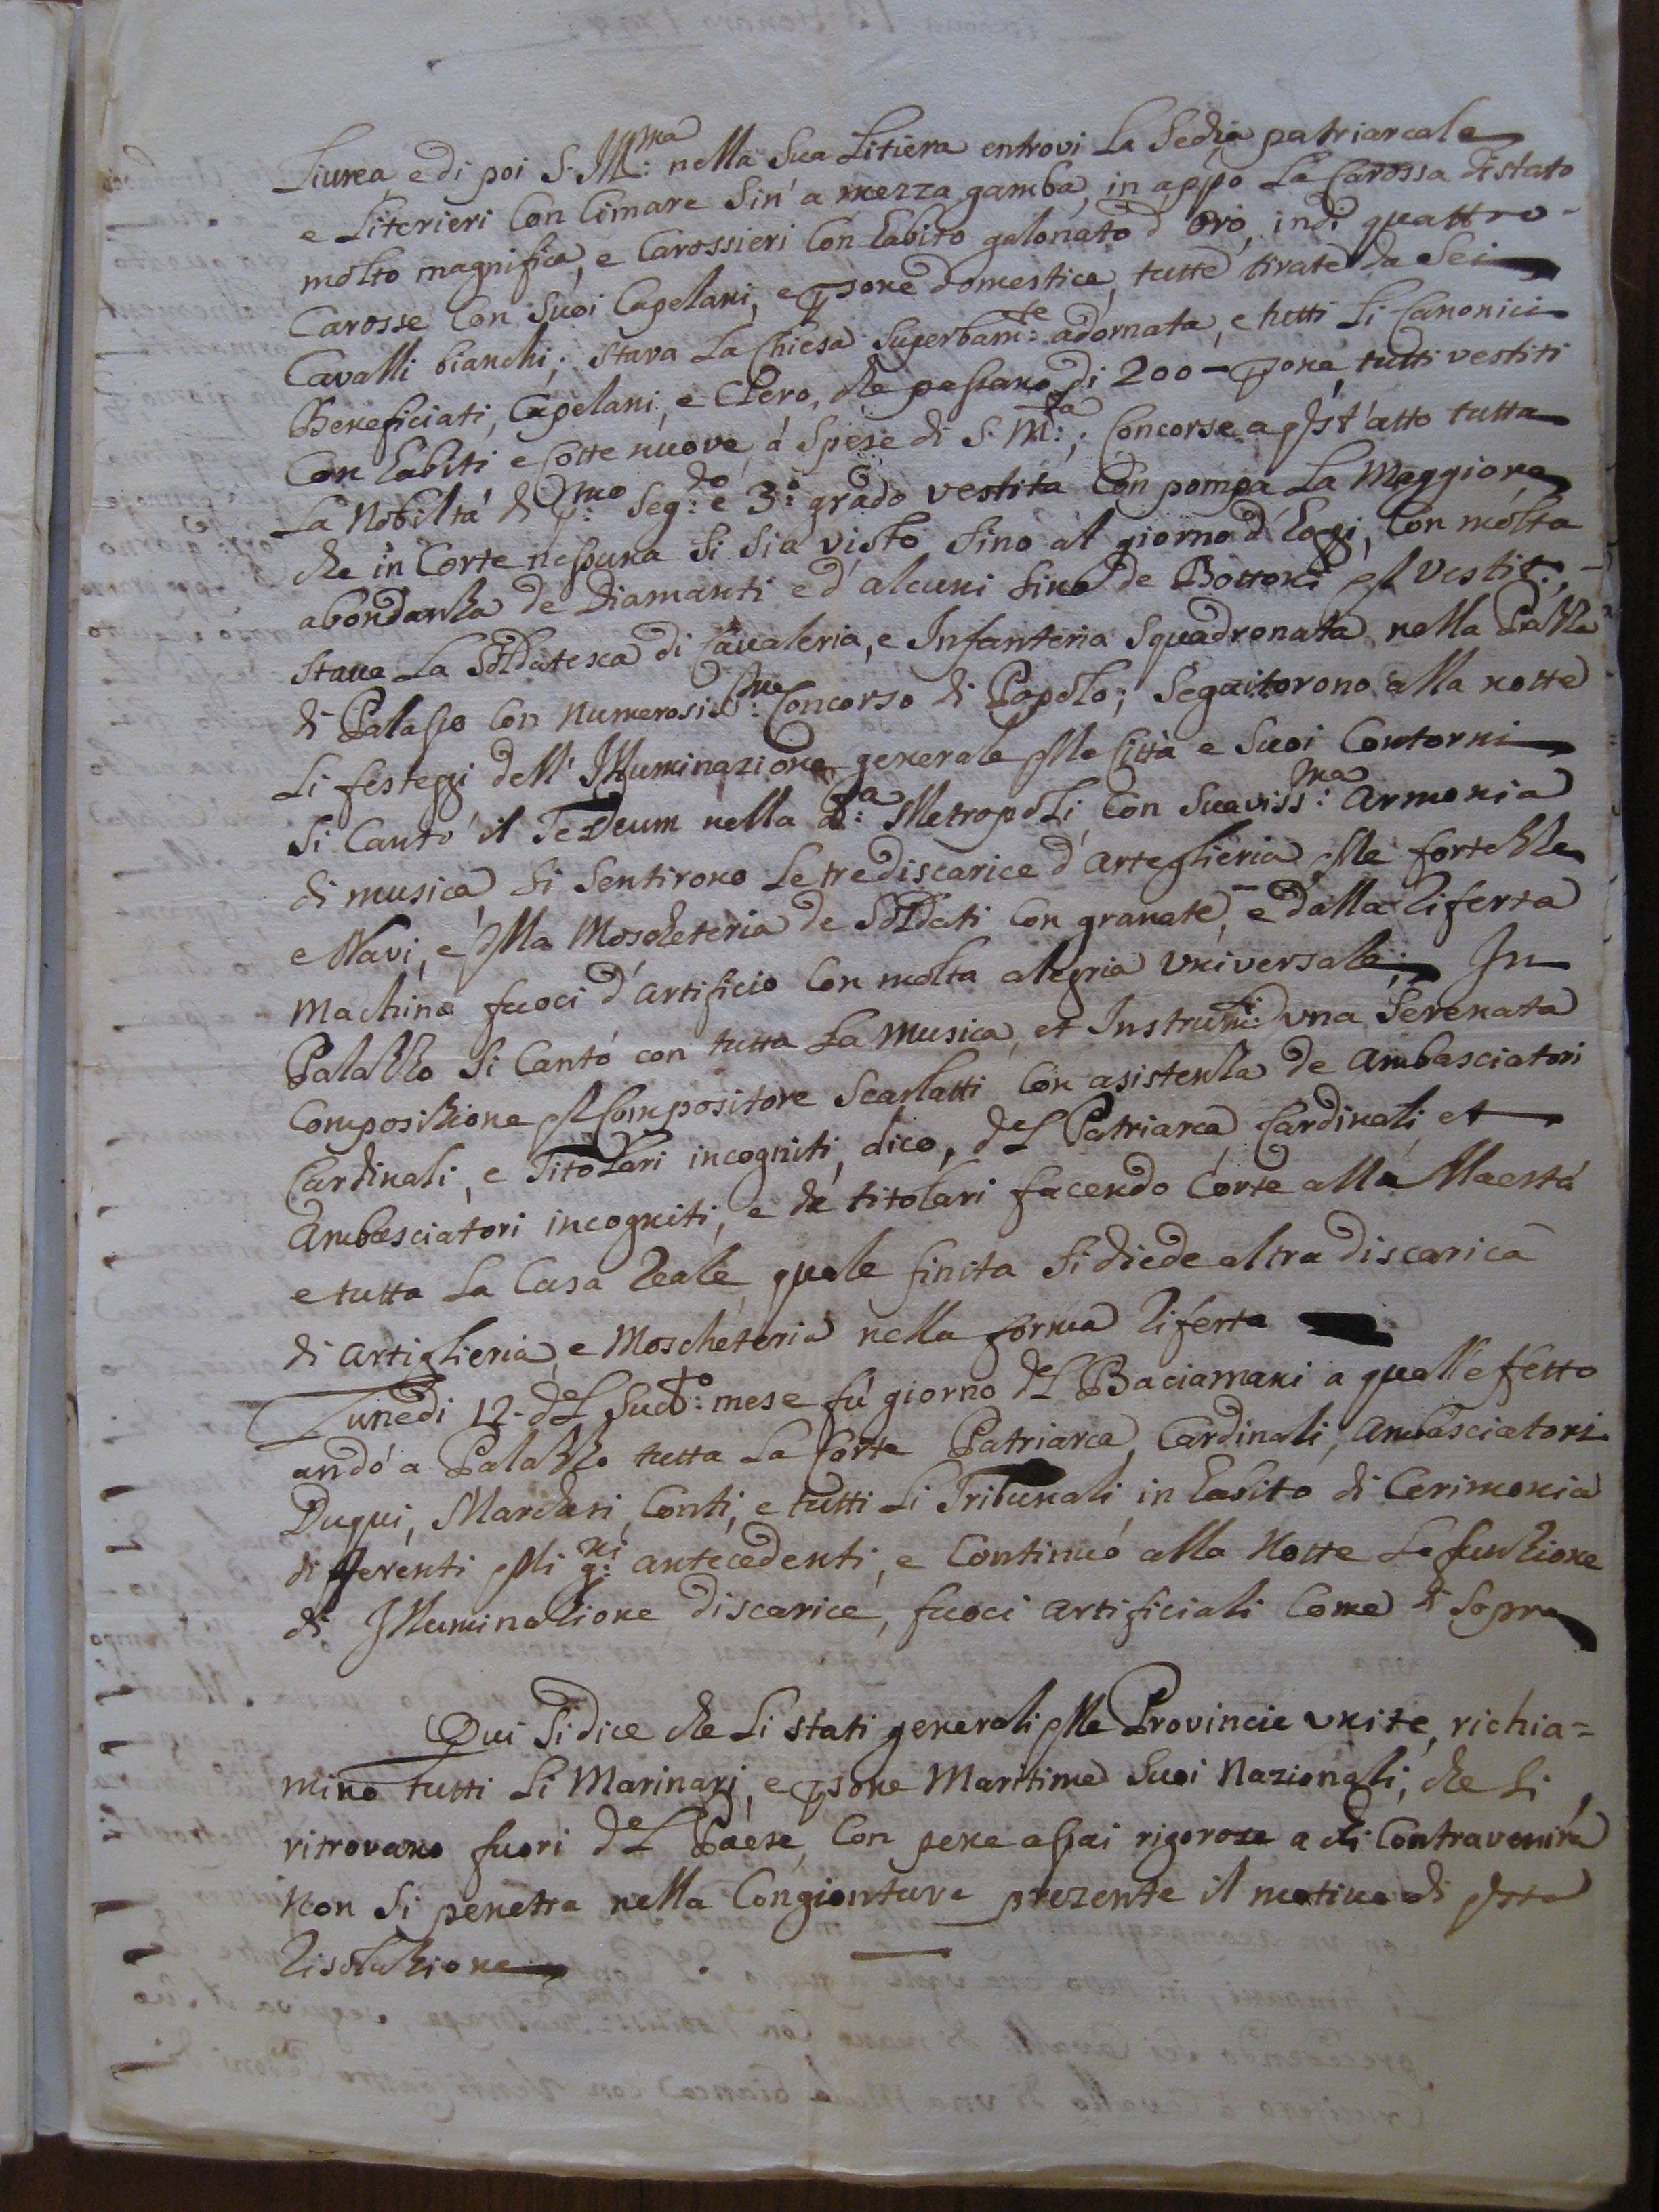 Liurea, e di poi S. Ill:ma nella sua Litiera entrovi La Sedia patriarcale
e Literieri Con Cimare Sin' a mezza gamba, in appo La Carossa di stato
molto magnifica, e Carossieri Con Labito galonato d' oro, indi quattro
Carosse Con Suoi Capelani, e psone domestice, tutte tirate da Sei
Cavalli bianchi; stava La Chiesa Superbam:te adornata, e tutti Li Canonici
Beneficiati, Capelani, e Clero, che passano di 200 - psone, tutti vestiti
Con Labiti, e Cotte nuove, á Spese di S. M:tá; Concorse a qst' atto tutta
La Nobiltá di P:mo Seg:do e 3:o grado vestita Con pompa La Maggiore
che in Corte nessuna Si Sia visto Sino al giorno d' Loggi, Con molta
abondanza de Diamanti ed' alcuni Sino de Bottoni dl Vestit:,
stava La Soldatesca di Cavaleria, e Infanteria Squadronata nella Piazza
di Palasso Con Numerosis:mo Concorso di Popolo; Seguitorono alla notte
Li festeggi dell' Illuminazione generale dlla Città e Suoi Contorni
Si Cantó il TeDeum nella d:ta Metropoli, Con Suaviss:ma armonia
di musica, Si Sentirono Le tre discarice d' Arteglieria dlle fortezze
e Navi, e dlla Moscheteria de Soldati Con granate, e dalla Riferta
Machina fuoci d' artificio Con molta alegria Vniversale; In
Palazzo Si Cantó con tutta La Musica, et Instrum:ti vna Serenata
Composizione dl Compositore Scarlatti Con asistenza de Ambasciatori
Cardinali, e Titolari incogniti, dico, del Patriarca, Cardinali, et
Ambasciatori incogniti, e de titolari facendo Corte alla Maestá
e tutta La Casa Reale, quale finita Si diede altra discarica
di Artiglieria, e Moscheteria nella forma Riferta
Lunedi 12. del Sud:to mese fú giorno del Baciamani a quall' effetto
andó a Palazzo tutta La Corte Patriarca, Cardinali, Ambasciatori
Duqui, Marchesi, Conti, e tutti Li Tribunali, in Labito di Cerimonia
differenti dlli g:ni antecedenti, e Continuó alla Notte La funzione
di Illuminazione, discarice, fuoci artificiali Come di Sopra
Qui Si dice che Li stati generali dlle Provincie vnite, richia=
mino tutti Li Marinari, e psone Maritime Suoi Nazionali, che Si
ritrovano fuori del Paese, Con pene assai rigorose a chi Contravenirá
Non Si penetra nella Congiontura prezente il motivo di qsta
Risoluzione